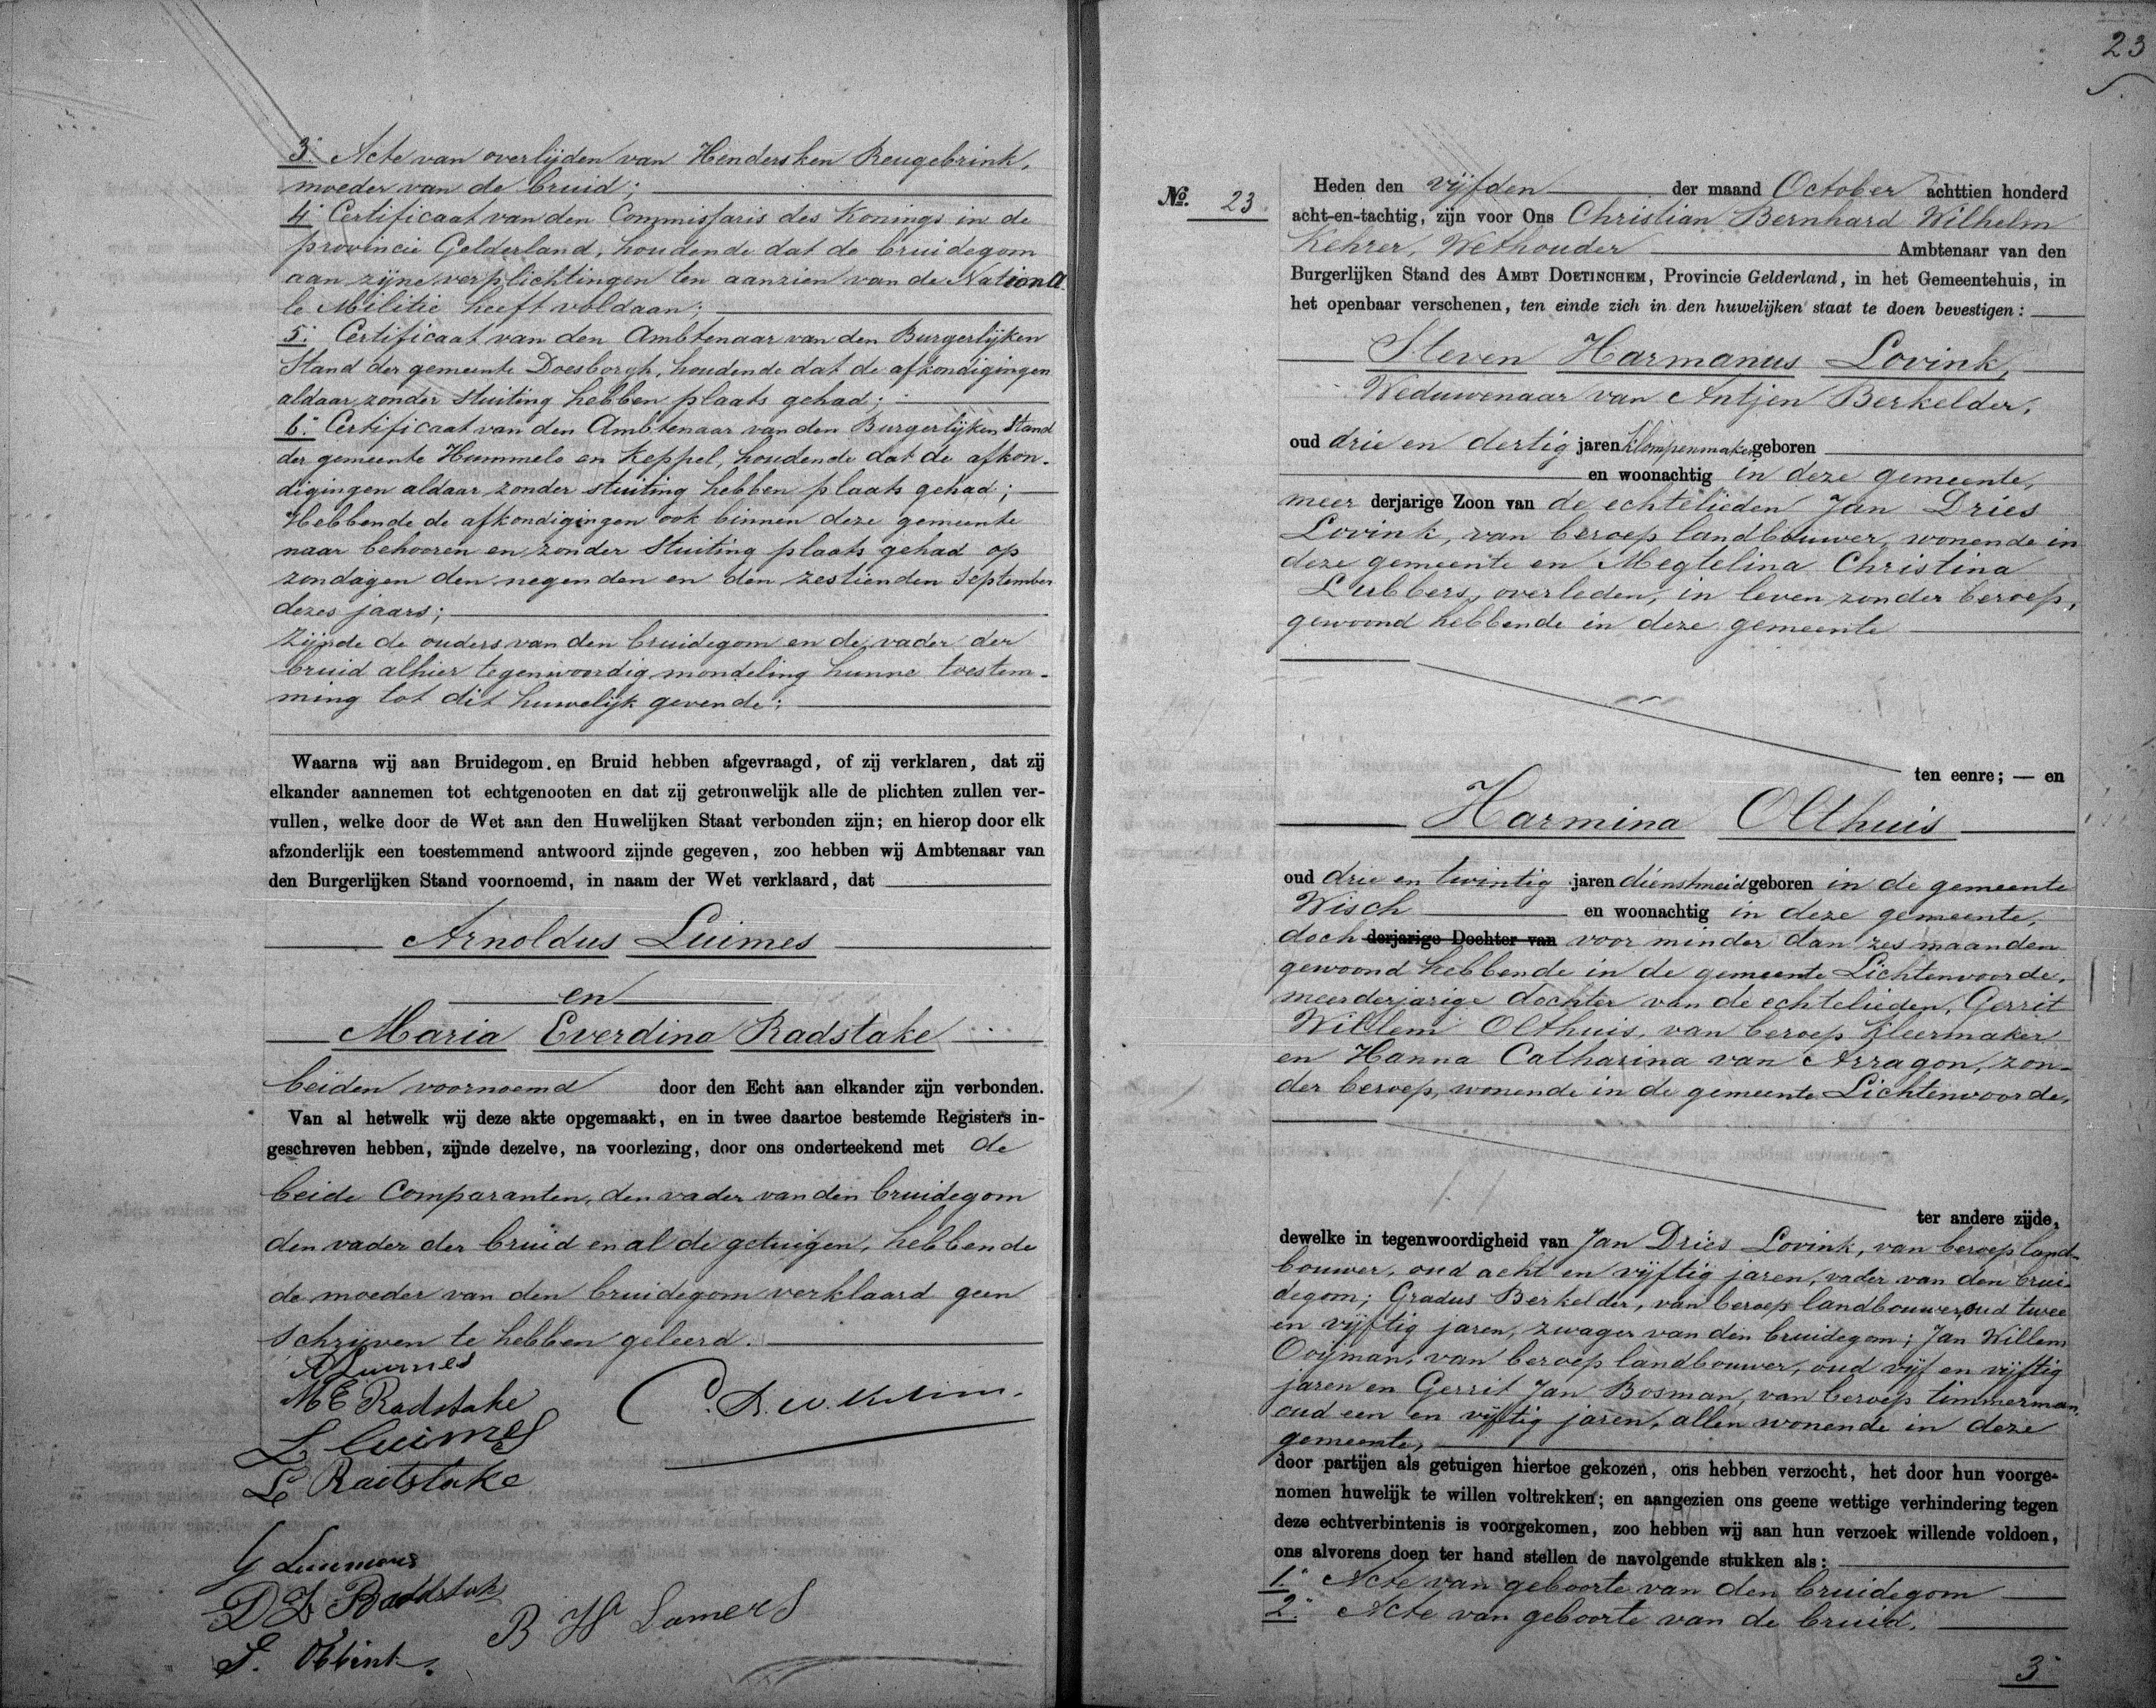 3º. Acte van overlijden van Hendersken Reugebrink,
moeder van de bruid;
4º Certificaat van den Commissaris des Konings in de
provincie Gelderland, houdende dat de bruidegom
aan zijne verplichtingen ten aanzien van de Nationa
le Militie heeft voldaan;
5º. Certificaat van den Ambtenaar van den Burgerlijken
Stand der gemeente Doesborgh, houdende dat de afkondigingen
aldaar zonder stuiting hebben plaats gehad;
6º. Certificaat van den Ambtenaar van den Burgerlijken Stand
der gemeente Hummelo en Keppel, houdende dat de afkon-
digingen aldaar zonder stuiting hebben plaats gehad;
Hebbende de afkondigingen ook binnen deze gemeente
naar behooren en zonder stuiting plaats gehad op
zondagen den negenden en den zestienden September
dezes jaars;
zijnde de ouders van den bruidegom en de vader der
bruid alhier tegenwoordig mondeling hunne toestem-
ming tot dit huwelijk gevende;
Waarna wij aan Bruidegom en Bruid hebben afgevraagd, of zij verklaren, dat zij
elkander aannemen tot echtgenooten en dat zij getrouwelijk alle de plichten zullen ver-
vullen, welke door de Wet aan den Huwelijken Staat verbonden zijn; en hierop door elk
afzonderlijk een toestemmend antwoord zijnde gegeven, zoo hebben wij Ambtenaar van
den Burgerlijken Stand voornoemd, in naam der Wet verklaard, dat
Arnoldus Luimes
en
Maria Everdina Radstake
beiden voornoemd door den Echt aan elkander zijn verbonden.
Van al hetwelk wij deze akte opgemaakt, en in twee daartoe bestemde Registers in-
geschreven hebben, zijnde dezelve, na voorlezing, door ons onderteekend met de
beide Comparanten, den vader van den bruidegom
den vader der bruid en al de getuigen, hebbende
de moeder van den bruidegom verklaard geen
schrijven te hebben geleerd.
A Luimes
M E Radstake
L Luimes
L Radstake
G Luumes
D Radstake
B H Lamers
G. Obbink.
23
Nº. 23
Heden den vijfden der maand October achttien honderd
acht-en-tachtig, zijn voor Ons Christian Bernhard Wilhelm
Kehrer, Wethouder Ambtenaar van den
Burgerlijken Stand des AMBT DOETINCHEM, Provincie Gelderland, in het Gemeentehuis, in
het openbaar verschenen, ten einde zich in den huwelijken staat te doen bevestigen:
Steven Harmanus Lovink,
Weduwenaar van Antjen Berkelder,
oud drie en dertig jaren klompenmaker geboren
en woonachtig in deze gemeente,
meer derjarige Zoon van de echtelieden Jan Dries
Lovink, van beroep landbouwer, wonende in
deze gemeente en Megtelina Christina
Lubbers, overleden, in leven zonder beroep,
gewoond hebbende in deze gemeente
ten eenre; — en
Harmina Olthuis
oud drie en twintig jaren dienstmeid geboren in de gemeente
Wisch en woonachtig in deze gemeente,
doch derjarige Dochter van voor minder dan zes maanden
gewoond hebbende in de gemeente Lichtenvoorde,
meerderjarige dochter van de echtelieden, Gerrit
Willem Olthuis, van beroep kleermaker
en Hanna Catharina van Arragon, zon-
der beroep, wonende in de gemeente Lichtenvoorde,
ter andere zijde,
dewelke in tegenwoordigheid van Jan Dries Lovink, van beroep land-
bouwer, oud acht en vijftig jaren, vader van den brui-
degom; Gradus Berkelder, van beroep landbouwer, oud twee
en vijftig jaren, zwager van den bruidegom; Jan Willem
Ooyman, van beroep landbouwer, oud vijf en vijftig
jaren en Gerrit Jan Bosman, van beroep timmerman,
oud een en vijftig jaren, allen wonende in deze
gemeente,
door partijen als getuigen hiertoe gekozen, ons hebben verzocht, het door hun voorge-
nomen huwelijk te willen voltrekken; en aangezien ons geene wettige verhindering tegen
deze echtverbintenis is voorgekomen, zoo hebben wij aan hun verzoek willende voldoen,
ons alvorens doen ter hand stellen de navolgende stukken als:
1º. Acte van geboorte van den bruidegom
2º. Acte van geboorte van de bruid.
3º